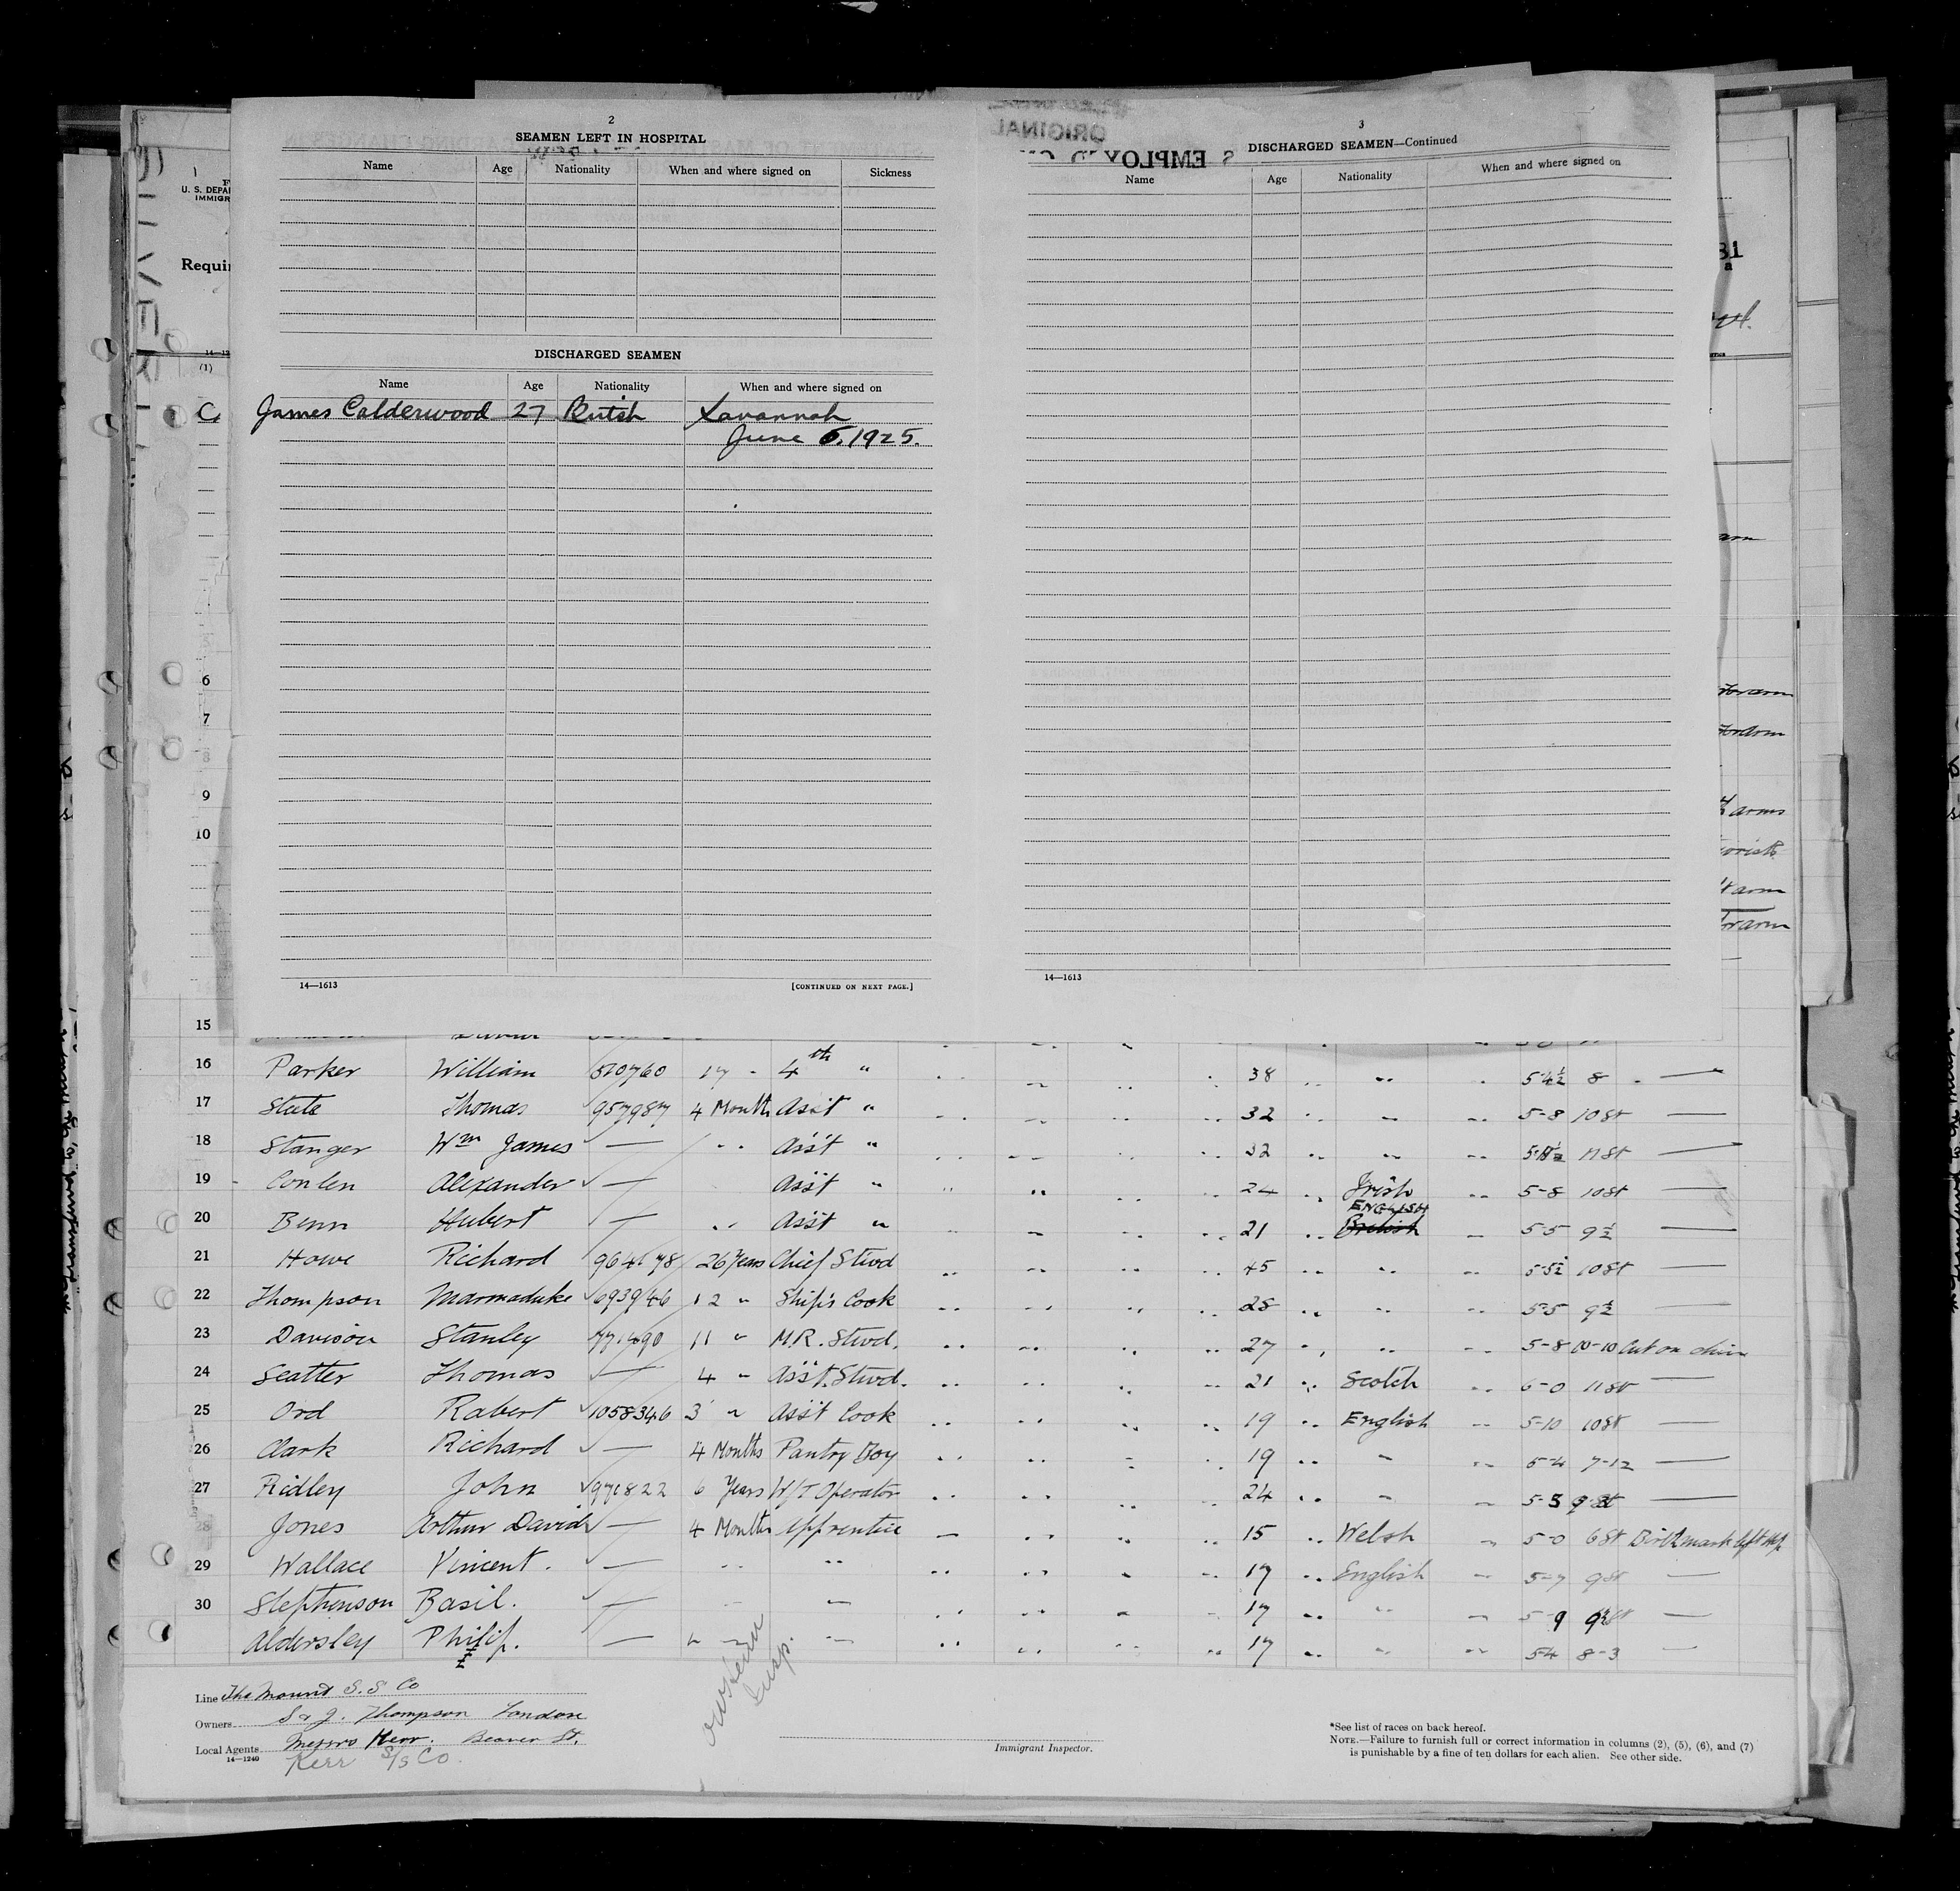 2
SEAMEN LEFT IN HOSPITAL
Name Age Nationality When and where signed on Sickness
DISCHARGED SEAMEN
Name Age Nationality When and where signed on
James Calderwood 27 British Savannah
June 6, 1925.
14—1613 [CONTINUED ON NEXT PAGE.]
ORIGINAL
3
DISCHARGED SEAMEN—Continued
EMPLOYED
Name Age Nationality When and where signed on
14—1613
U. S. DEPA
IMMIGR
Requi
(1)
31
a
6
7
8
9
10
15
16 Parker William 510760 17 " 4th " 38 5-4½ 8
17 State Thomas 957987 4 Months Ass't " 32 5-8 10 St
18 Stanger Wm James — Ass't " 32 11 St
19 Conlen Alexander — Ass't " 24 Irish 5-8 10 St
20 Benn Hubert — Ass't " 21 ENGLISH British 5-5 9½
21 Howe Richard 964178 26 Years Chief Stwd 45 5-5½ 10 St
22 Thompson Marmaduke 693946 12 " Ship's Cook 28 5-5 9½
23 Davison Stanley 771490 11 " M.R. Stwd. 27 5-8 10-10 Cut on chin
24 Scatter Thomas — 4 " Ass't. Stwd. 21 Scotch 6-0 11 St
25 Ord Robert 1058346 3 " Ass't Cook 19 English 5-10 10 St
26 Clark Richard — 4 Months Pantry Boy 19 " 5-4 7-12
27 Ridley John 971822 6 Years W/T Operator 24 " 5-5
28 Jones Arthur David — 4 Months Apprentice 15 Welsh 5-0 6 St Birthmark left
29 Wallace Vincent. — 17 English 5-7 9 St
30 Stephenson Basil. — 17 5-9
Aldersley Philip. — 17 5-4 8-3
Line The Mount S.S Co
Owners S & J. Thompson London
Local Agents Messrs Kerr. Beaver St.
14—1240 Kerr S/S Co.
Insp.
Immigrant Inspector.
*See list of races on back hereof.
NOTE.—Failure to furnish full or correct information in columns (2), (5), (6), and (7)
is punishable by a fine of ten dollars for each alien. See other side.